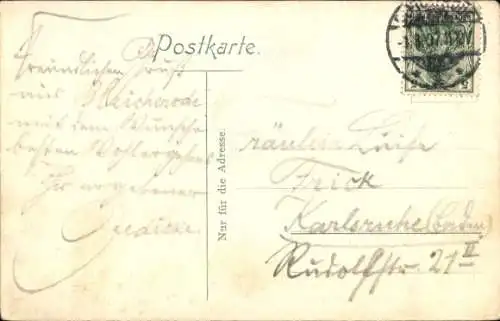 Postkarte.
Freundlichen Gruß
aus Bleicherode
mit dem Wunsche
besten Wohlergehens
Ihr ergebener
Nur für die Adresse.
Fräulein Luise
Frick
Karlsruhe (Baden)
Rudolfstr. 21 II
5